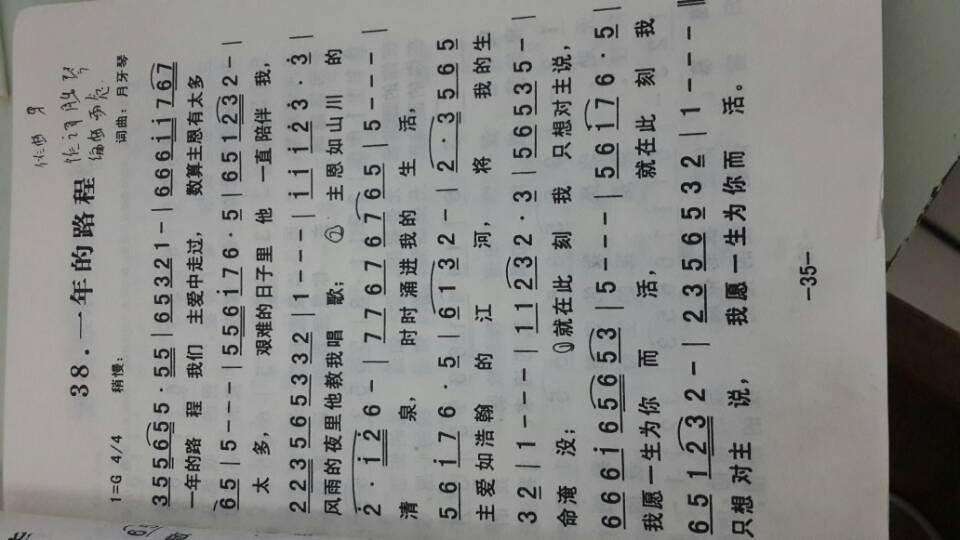 作曲
38.一年的路程
1=G 4/4 稍慢: 词曲:月牙琴
3 5 5 5 6 5 5 · 5 5 | 6 5 3 2 1 – | 6 6 6 i i 7 6 7
一年的路 程 我们 主爱中走过, 数算主恩有太多
6 5 | 5 – – – | 5 5 6 i 7 6 · 5 | 6 5 1 2 3 2 – |
太 多, 艰难的日子里 他 一直陪伴 我,
2 2 3 5 6 5 3 3 2 | 1 – – – | i i i 2 3 · 3 |
风雨的夜里他教我唱 歌; ② 主恩如山川 的
2 · i 2 6 – | 7 7 6 7 6 7 6 5 | 5 – – – |
清 泉, 时时涌进我的 生 活,
5 6 i 7 6 · 5 | 6 1 3 2 – | 2 · 3 5 6 5
主爱如浩瀚 的 江 河, 将 我的生
3 2 | 1 – – – | 1 1 2 3 2 · 3 | 5 6 5 3 5 – |
命淹 没; ①就在此 刻 我 只想对主说,
6 6 6 i 6 5 6 5 3 | 5 – – – | 5 6 i 7 6 · 5 |
我愿一生为你 而 活, 就在此 刻 我
6 5 1 2 3 2 – | 2 3 5 6 5 3 2 | 1 – – – ‖
只想对主 说, 我愿一生为你而 活。
–35–